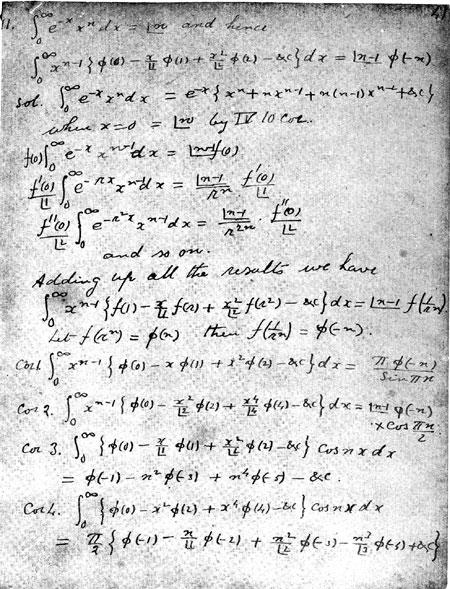 41
11. ∫₀^∞ e^{-x} xⁿ dx = |n and hence
∫₀^∞ x^{n-1} {φ(0) - x/|1 φ(1) + x²/|2 φ(2) - &c} dx = |n-1 φ(-n)
Sol. ∫₀^∞ e^{-x} xⁿ dx = e^{-x} {xⁿ + n x^{n-1} + n(n-1) x^{n-2} + &c}
when x=0 = |n by IV 10 Cor.
f(0) ∫₀^∞ e^{-x} x^{n-1} dx = |n-1 f(0)
f'(0)/|1 ∫₀^∞ e^{-rx} x^{n-1} dx = |n-1/rⁿ f'(0)/|1
f''(0)/|2 ∫₀^∞ e^{-r²x} x^{n-1} dx = |n-1/r^{2n} · f''(0)/|2
and so on.
Adding up all the results we have
∫₀^∞ x^{n-1} {f(1) - x/|1 f(r) + x²/|2 f(r²) - &c} dx = |n-1 f(1/rⁿ).
Let f(rⁿ) = φ(n) then f(1/rⁿ) = φ(-n).
Cor 1 ∫₀^∞ x^{n-1} {φ(0) - x φ(1) + x² φ(2) - &c} dx = π φ(-n)/Sin πn
Cor 2. ∫₀^∞ x^{n-1} {φ(0) - x²/|2 φ(2) + x⁴/|4 φ(4) - &c} dx = |n-1 φ(-n)
× cos πn/2.
Cor 3. ∫₀^∞ {φ(0) - x/|1 φ(1) + x²/|2 φ(2) - &c} cos nx dx
= φ(-1) - n² φ(-3) + n⁴ φ(-5) - &c.
Cor 4. ∫₀^∞ {φ(0) - x² φ(2) + x⁴ φ(4) - &c} cos nx dx
= π/2 {φ(-1) - n/|1 φ(-2) + n²/|2 φ(-3) - n³/|3 φ(-4) + &c}